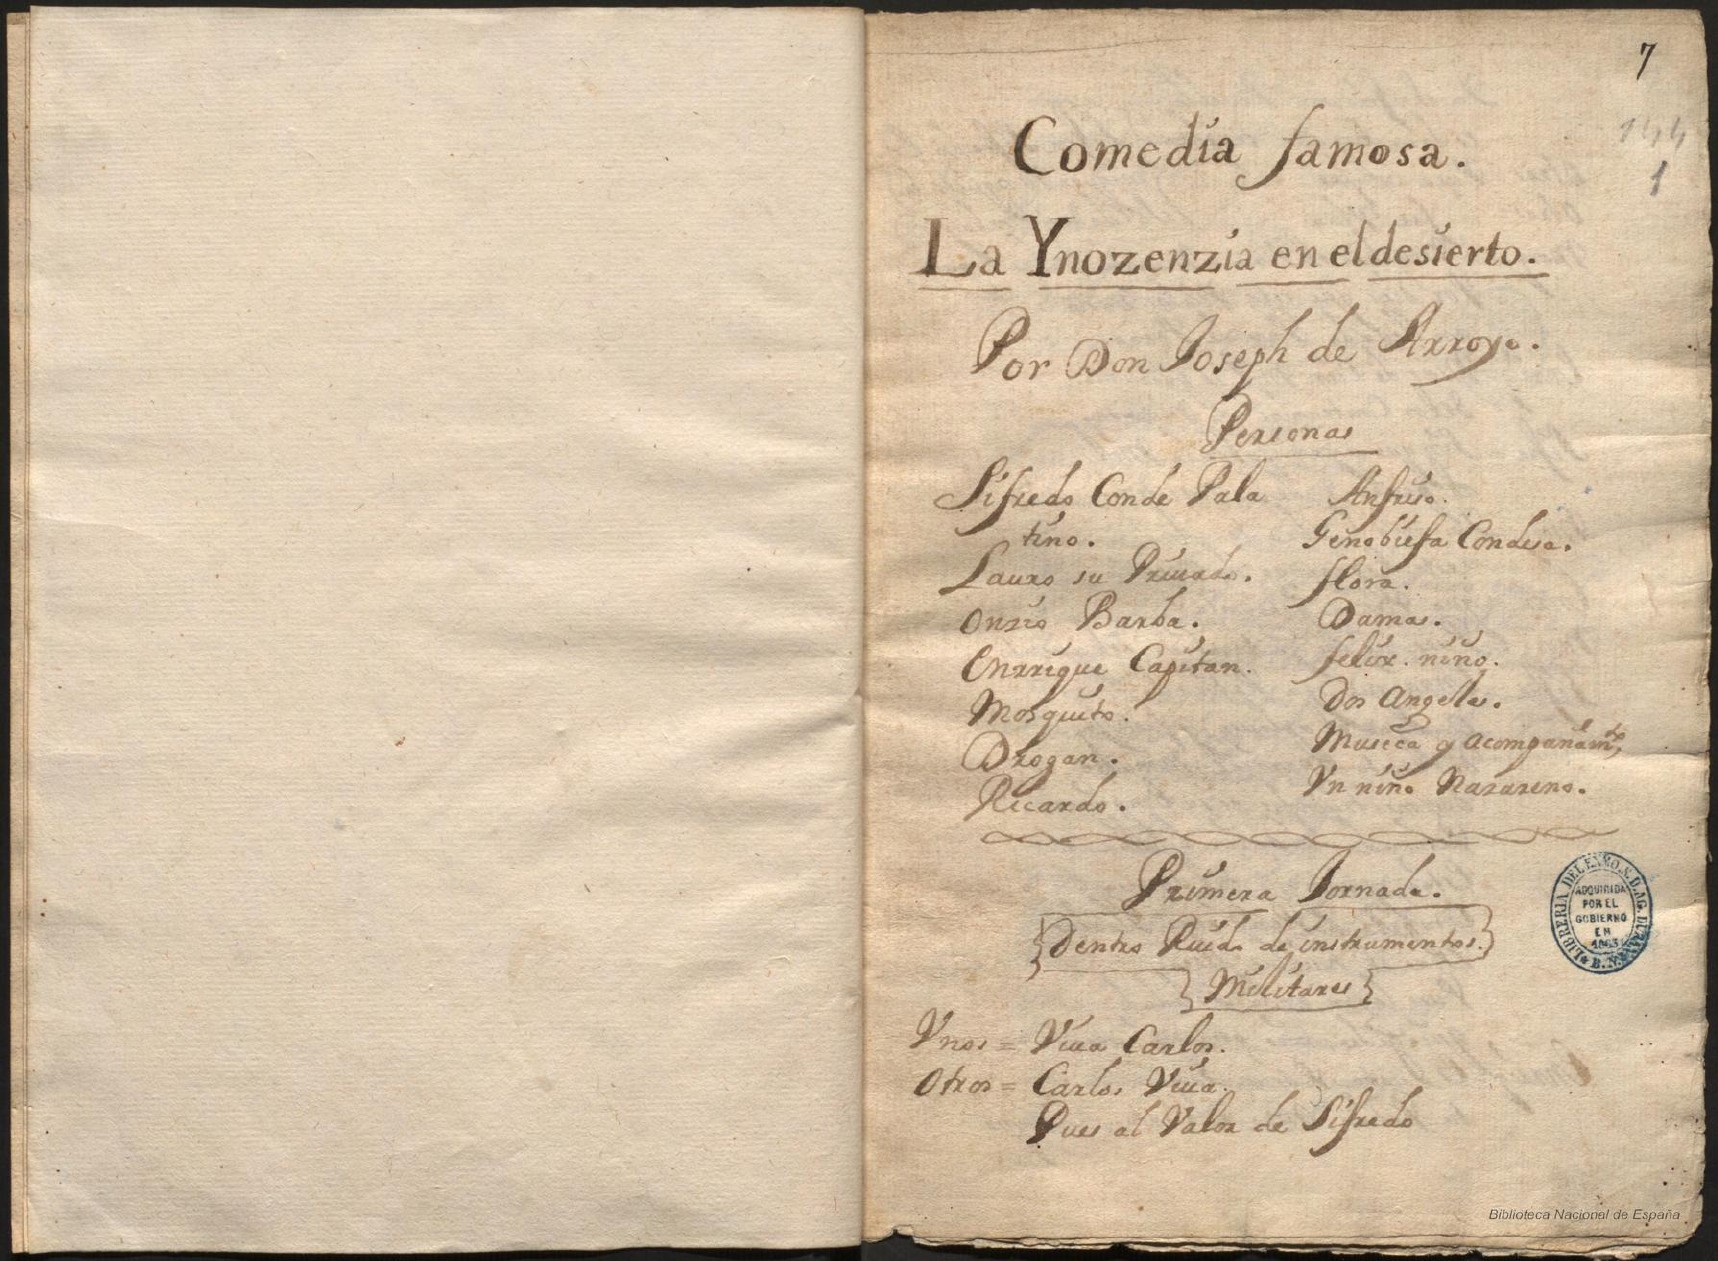 7
144
1
Comedia famosa.
La Ynozenzia en el desierto.
Por Don Joseph de Arroyo.
Personas
Sifredo Conde Pala
tino.
Lauro su Priuado.
Onzio Barba.
Enrrique Capitan.
Mosquito.
Drogan.
Ricardo.
Anfriso.
Genobiefa Condesa.
flora.
Damas.
felix niño.
Dos Angeles.
Musica y acompañamto,
Vn niño Nazareno.
Primera Jornada.
Dentro Ruido de instrumentos.
Militares
Vnos = Viua Carlos.
Otros = Carlos Viua.
Pues al Valor de Sifredo
LIBRERIA DEL EXMO. S. D. AG. DURAN
ADQUIRIDA
POR EL
GOBIERNO
EN
1863
B.N.
Biblioteca Nacional de España